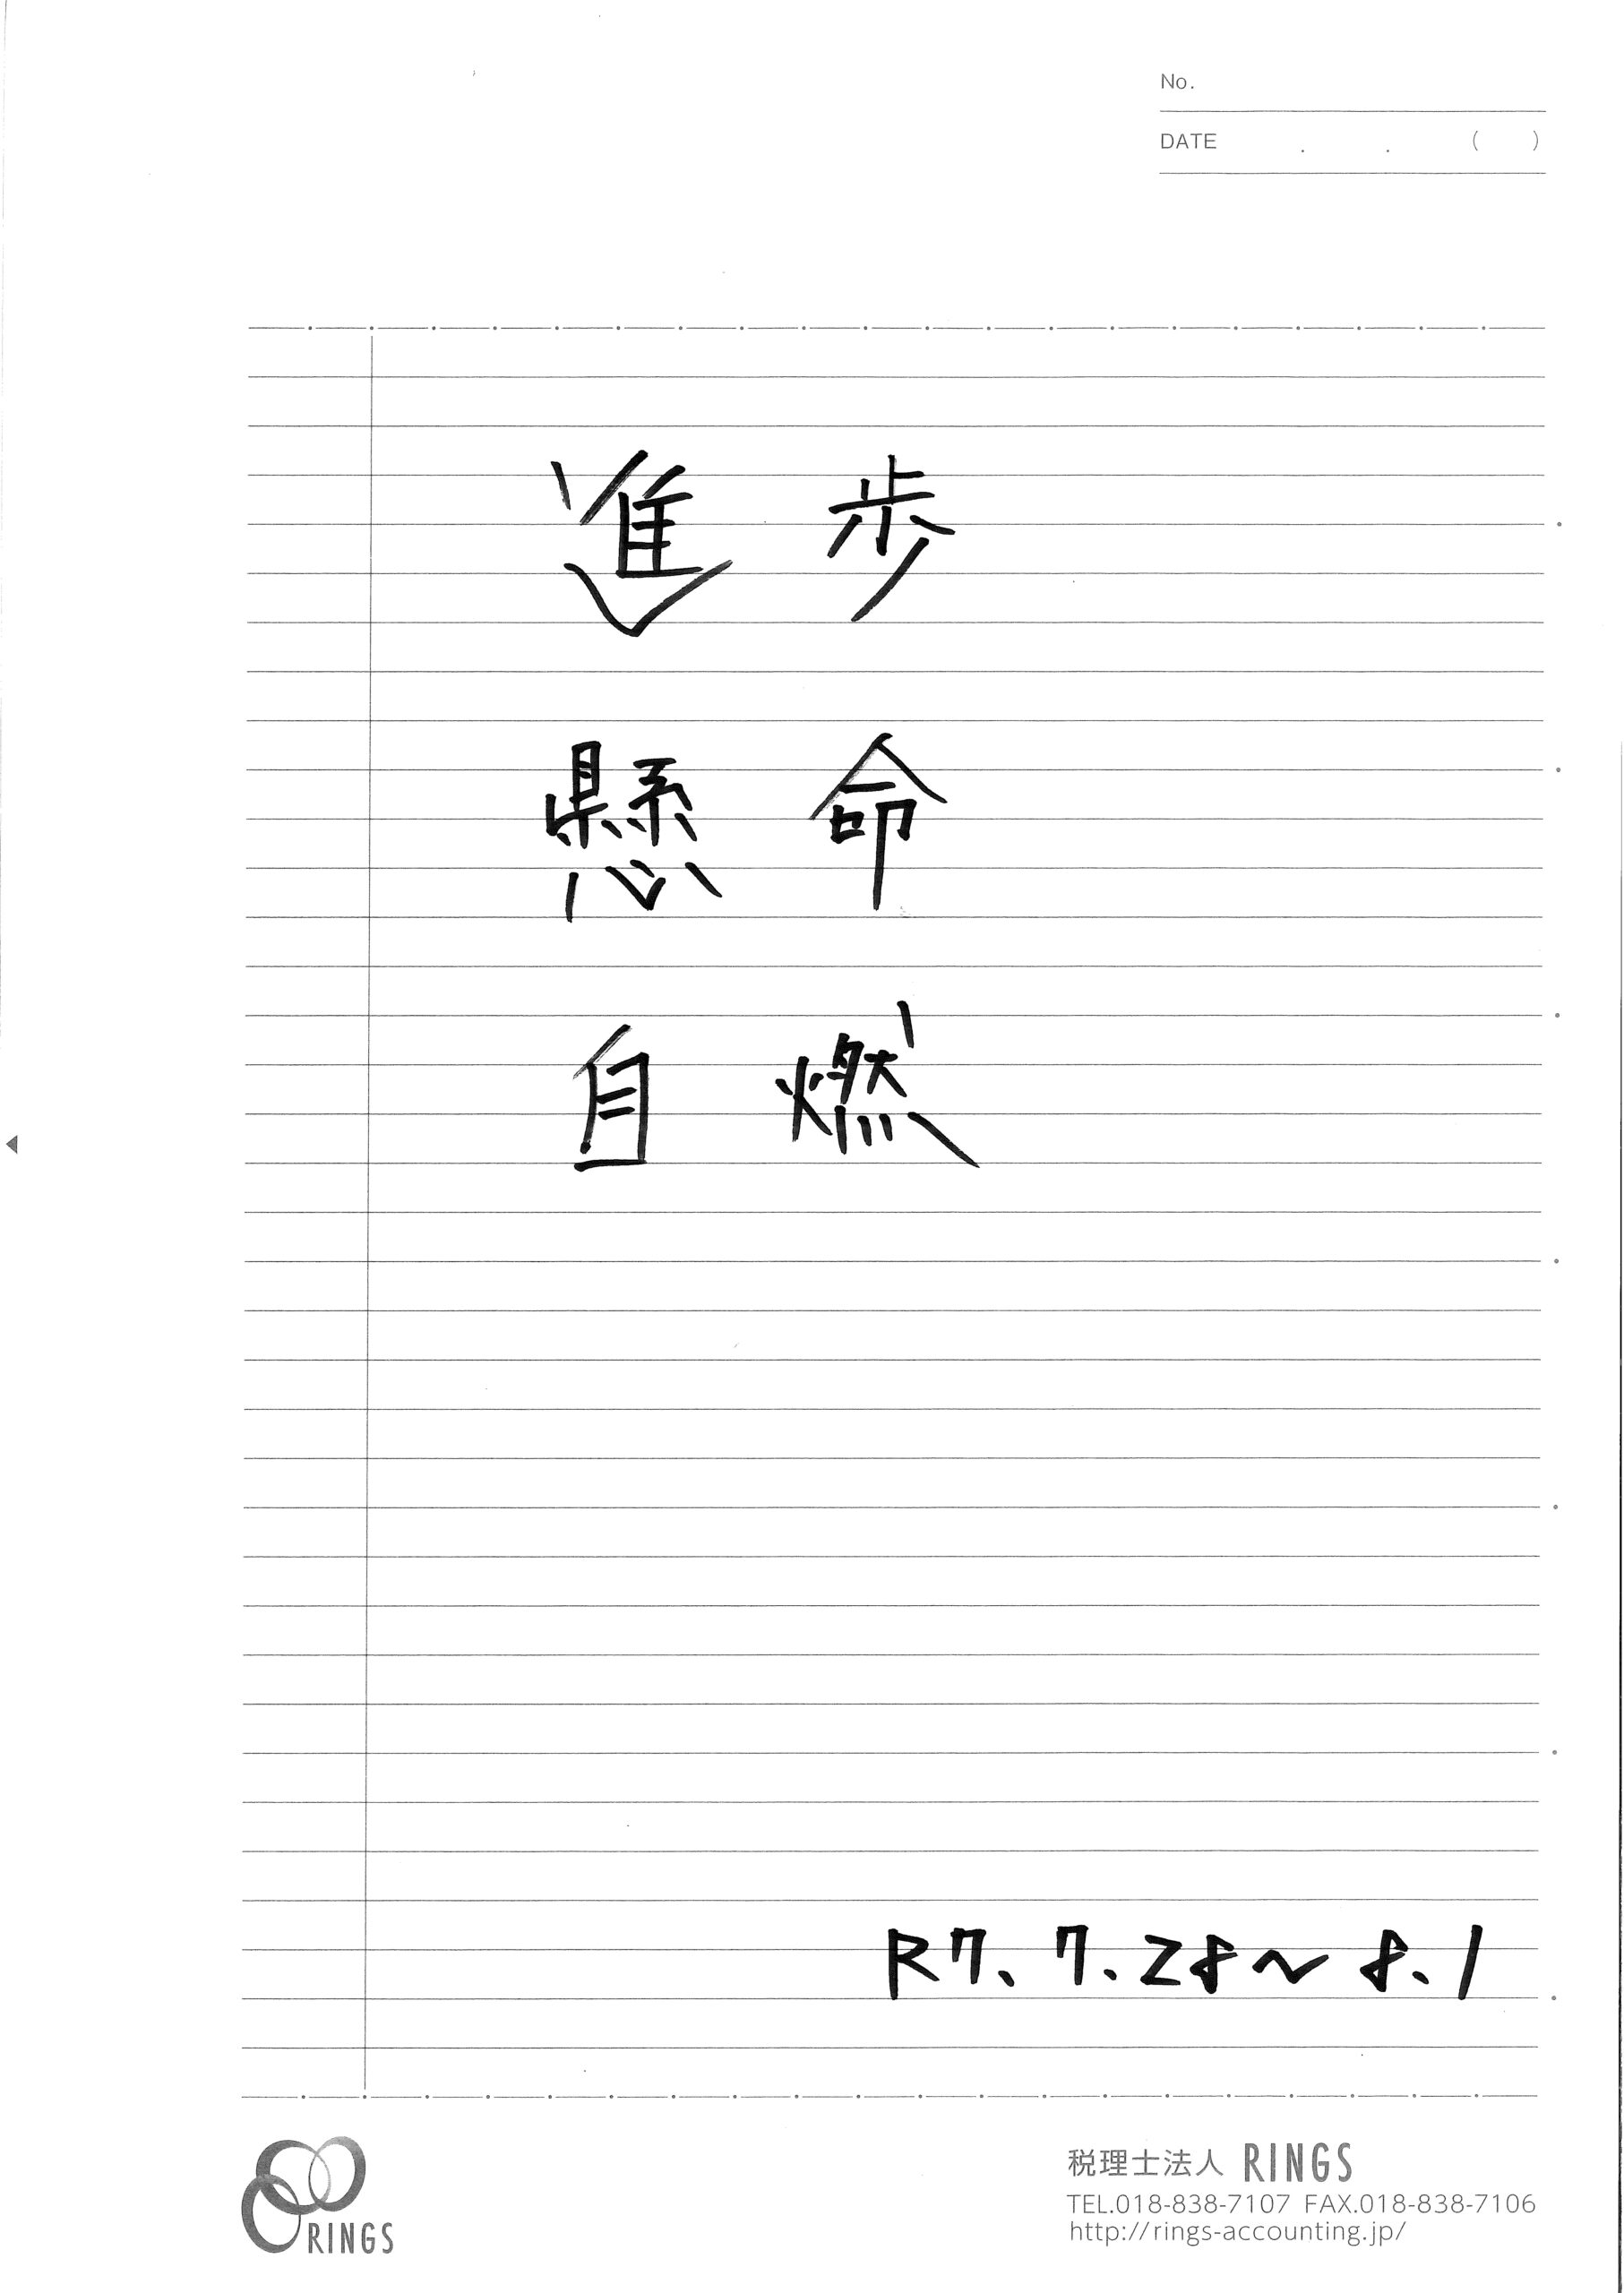 No.
DATE . . ( )
進歩
懸命
自燃
R7、7、28～8、1
RINGS
税理士法人 RINGS
TEL.018-838-7107 FAX.018-838-7106
http://rings-accounting.jp/